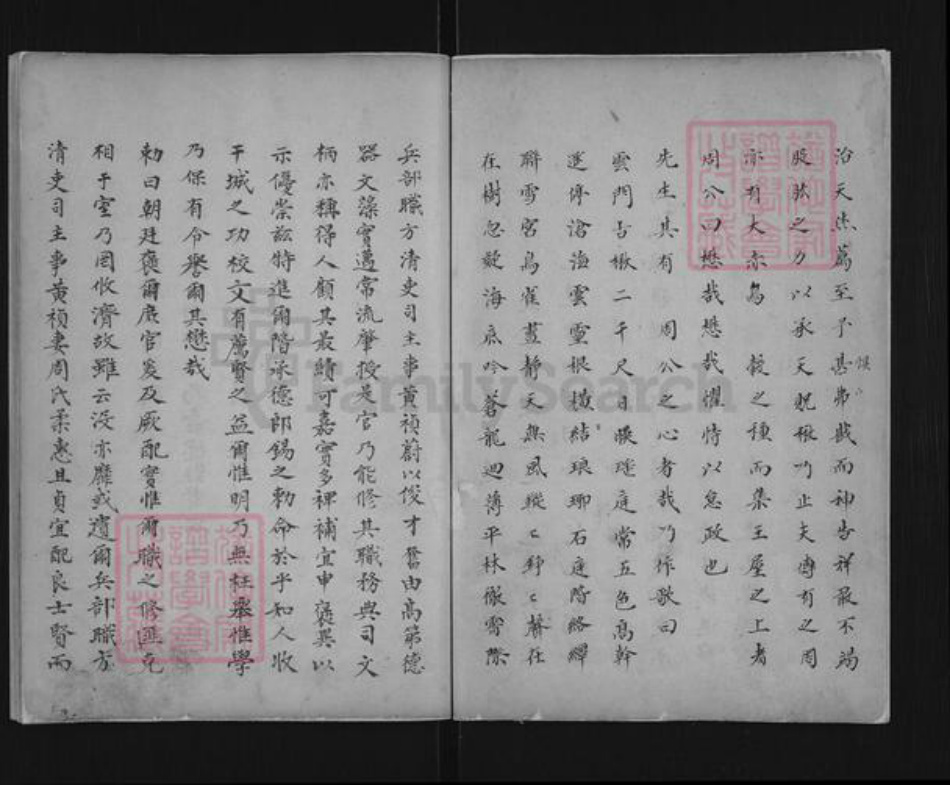 治天休焉至予甚弗戡而神告祥敢不竭
悞
股肱之力以承天貺楸乃止夫傳有之周
亦有大赤烏 穀之種而集王屋之上者
周公曰懋哉懋哉懼恃以怠政也
先生其有周公之心者哉乃作歌曰
雲門古楸二千尺日暎瑶庭常五色高幹
遥停滄海雲靈根横結琅琊石庭階絡繹
聯雪宮鳥雀晝靜天無風蹤〻 〻聲在
在樹忽疑海底吟蒼龍迴薄平林徹霄際
兵部職方清吏司主事黄禎蔚以俊才奮由高第德
器文藻實邁常流肇授是官乃能修其職務典司文
柄亦稱得人顧其最績可嘉實多裨補宜申褒異以
示優崇玆特進爾階承德郎錫之勅命於乎知人收
干城之功校文有薦賢之益爾惟明乃無枉舉惟學
乃保有令譽爾其懋哉
勅曰朝廷褒爾庶官爰及厥配實惟爾職之修匪克
相于室乃罔攸濟故雖云没亦靡或遺爾兵部職方
清吏司主事黄禎妻周氏柔惠且貞宜配良士賢而
FamilySearch